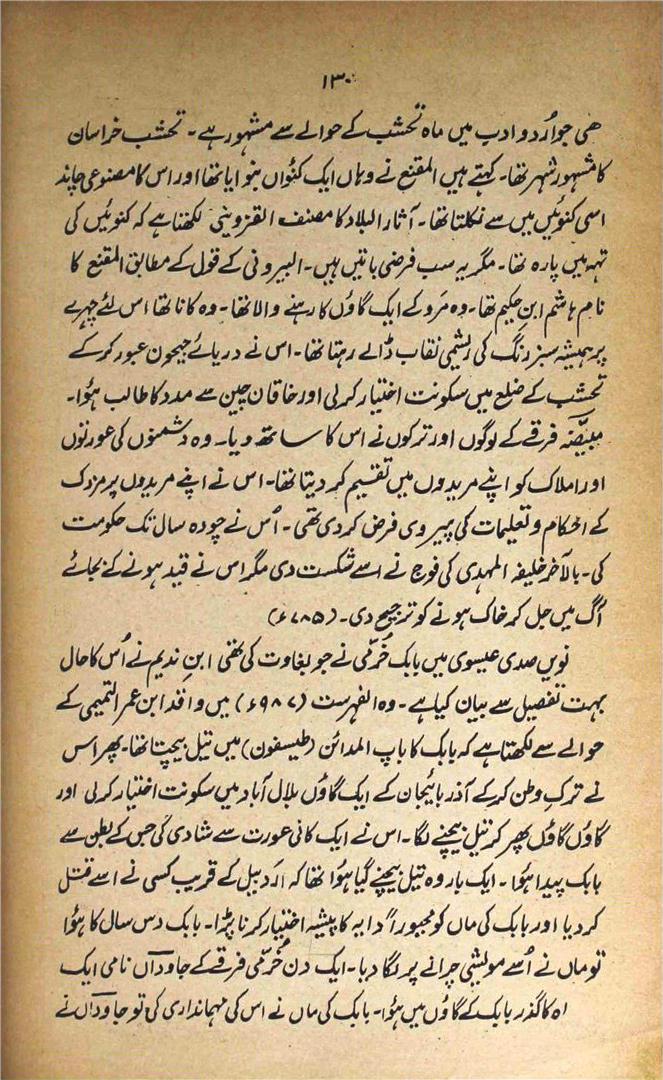 ۱۳۰
ھی جو اُردو ادب میں ماہ نخشب کے حوالے سے مشہور ہے۔ نخشب خراسان
کا مشہور شہر تھا۔ کہتے ہیں المقنع نے وہاں ایک کنُواں بنوایا تھا اور اس کا مصنوعی چاند
اسی کنوئیں میں سے نکلتا تھا۔ آثار البلاد کا مصنف القزوینی لکھتا ہے کہ کنوئیں کی
تہہ میں پارہ تھا۔ مگر یہ سب فرضی باتیں ہیں۔ البیرونی کے قول کے مطابق المقنع کا
نام ہاشم ابنِ حکیم تھا۔ وہ مَرو کے ایک گاؤں کا رہنے والا تھا۔ وہ کانا تھا اس لئے چہرے
پر ہمیشہ سبز رنگ کی ریشمی نقاب ڈالے رہتا تھا۔ اس نے دریائے جیحون عبور کر کے
نخشب کے ضلع میں سکونت اختیار کر لی اور خاقان چین سے مدد کا طالب ہؤا۔
مبیّضہ فرقے کے لوگوں اور ترکوں نے اس کا ساتھ دیا۔ وہ دشمنوں کی عورتوں
اور املاک کو اپنے مریدوں میں تقسیم کر دیتا تھا۔ اس نے اپنے مریدوں پر مزدک
کے احکام و تعلیمات کی پیروی فرض کر دی تھی۔ اُس نے چودہ سال تک حکومت
کی۔ بالآخر خلیفہ المہدی کی فوج نے اسے شکست دی مگر اس نے قید ہونے کے بجائے
آگ میں جل کر خاک ہونے کو ترجیح دی۔ (۷۸۵ء)
نویں صدی عیسوی میں بابک خُرّمی نے جو بغاوت کی تھی ابنِ ندیم نے اُس کا حال
بہت تفصیل سے بیان کیا ہے۔ وہ الفہرست (۹۸۷ء) میں واقد ابن عمر التمیمی کے
حوالے سے لکھتا ہے کہ بابک کا باپ المدائن (طیسفون) میں تیل بیچتا تھا۔ پھر اس
نے ترکِ وطن کر کے آذر بائیجان کے ایک گاؤں بلال آباد میں سکونت اختیار کر لی اور
گاؤں گاؤں پھر کر تیل بیچنے لگا۔ اس نے ایک کانی عورت سے شادی کی جس کے بطن سے
بابک پیدا ہؤا۔ ایک بار وہ تیل بیچنے گیا ہؤا تھا کہ اَردبیل کے قریب کسی نے اسے قتل
کر دیا اور بابک کی ماں کو مجبوراً دایہ کا پیشہ اختیار کرنا پڑا۔ بابک دس سال کا ہؤا
تو ماں نے اُسے مویشی چرانے پر لگا دیا۔ ایک دن خُرّمی فرقے کے جاوداں نامی ایک
اہ کا گذر بابک کے گاؤں میں ہؤا۔ بابک کی ماں نے اس کی مہمانداری کی تو جاوداں نے